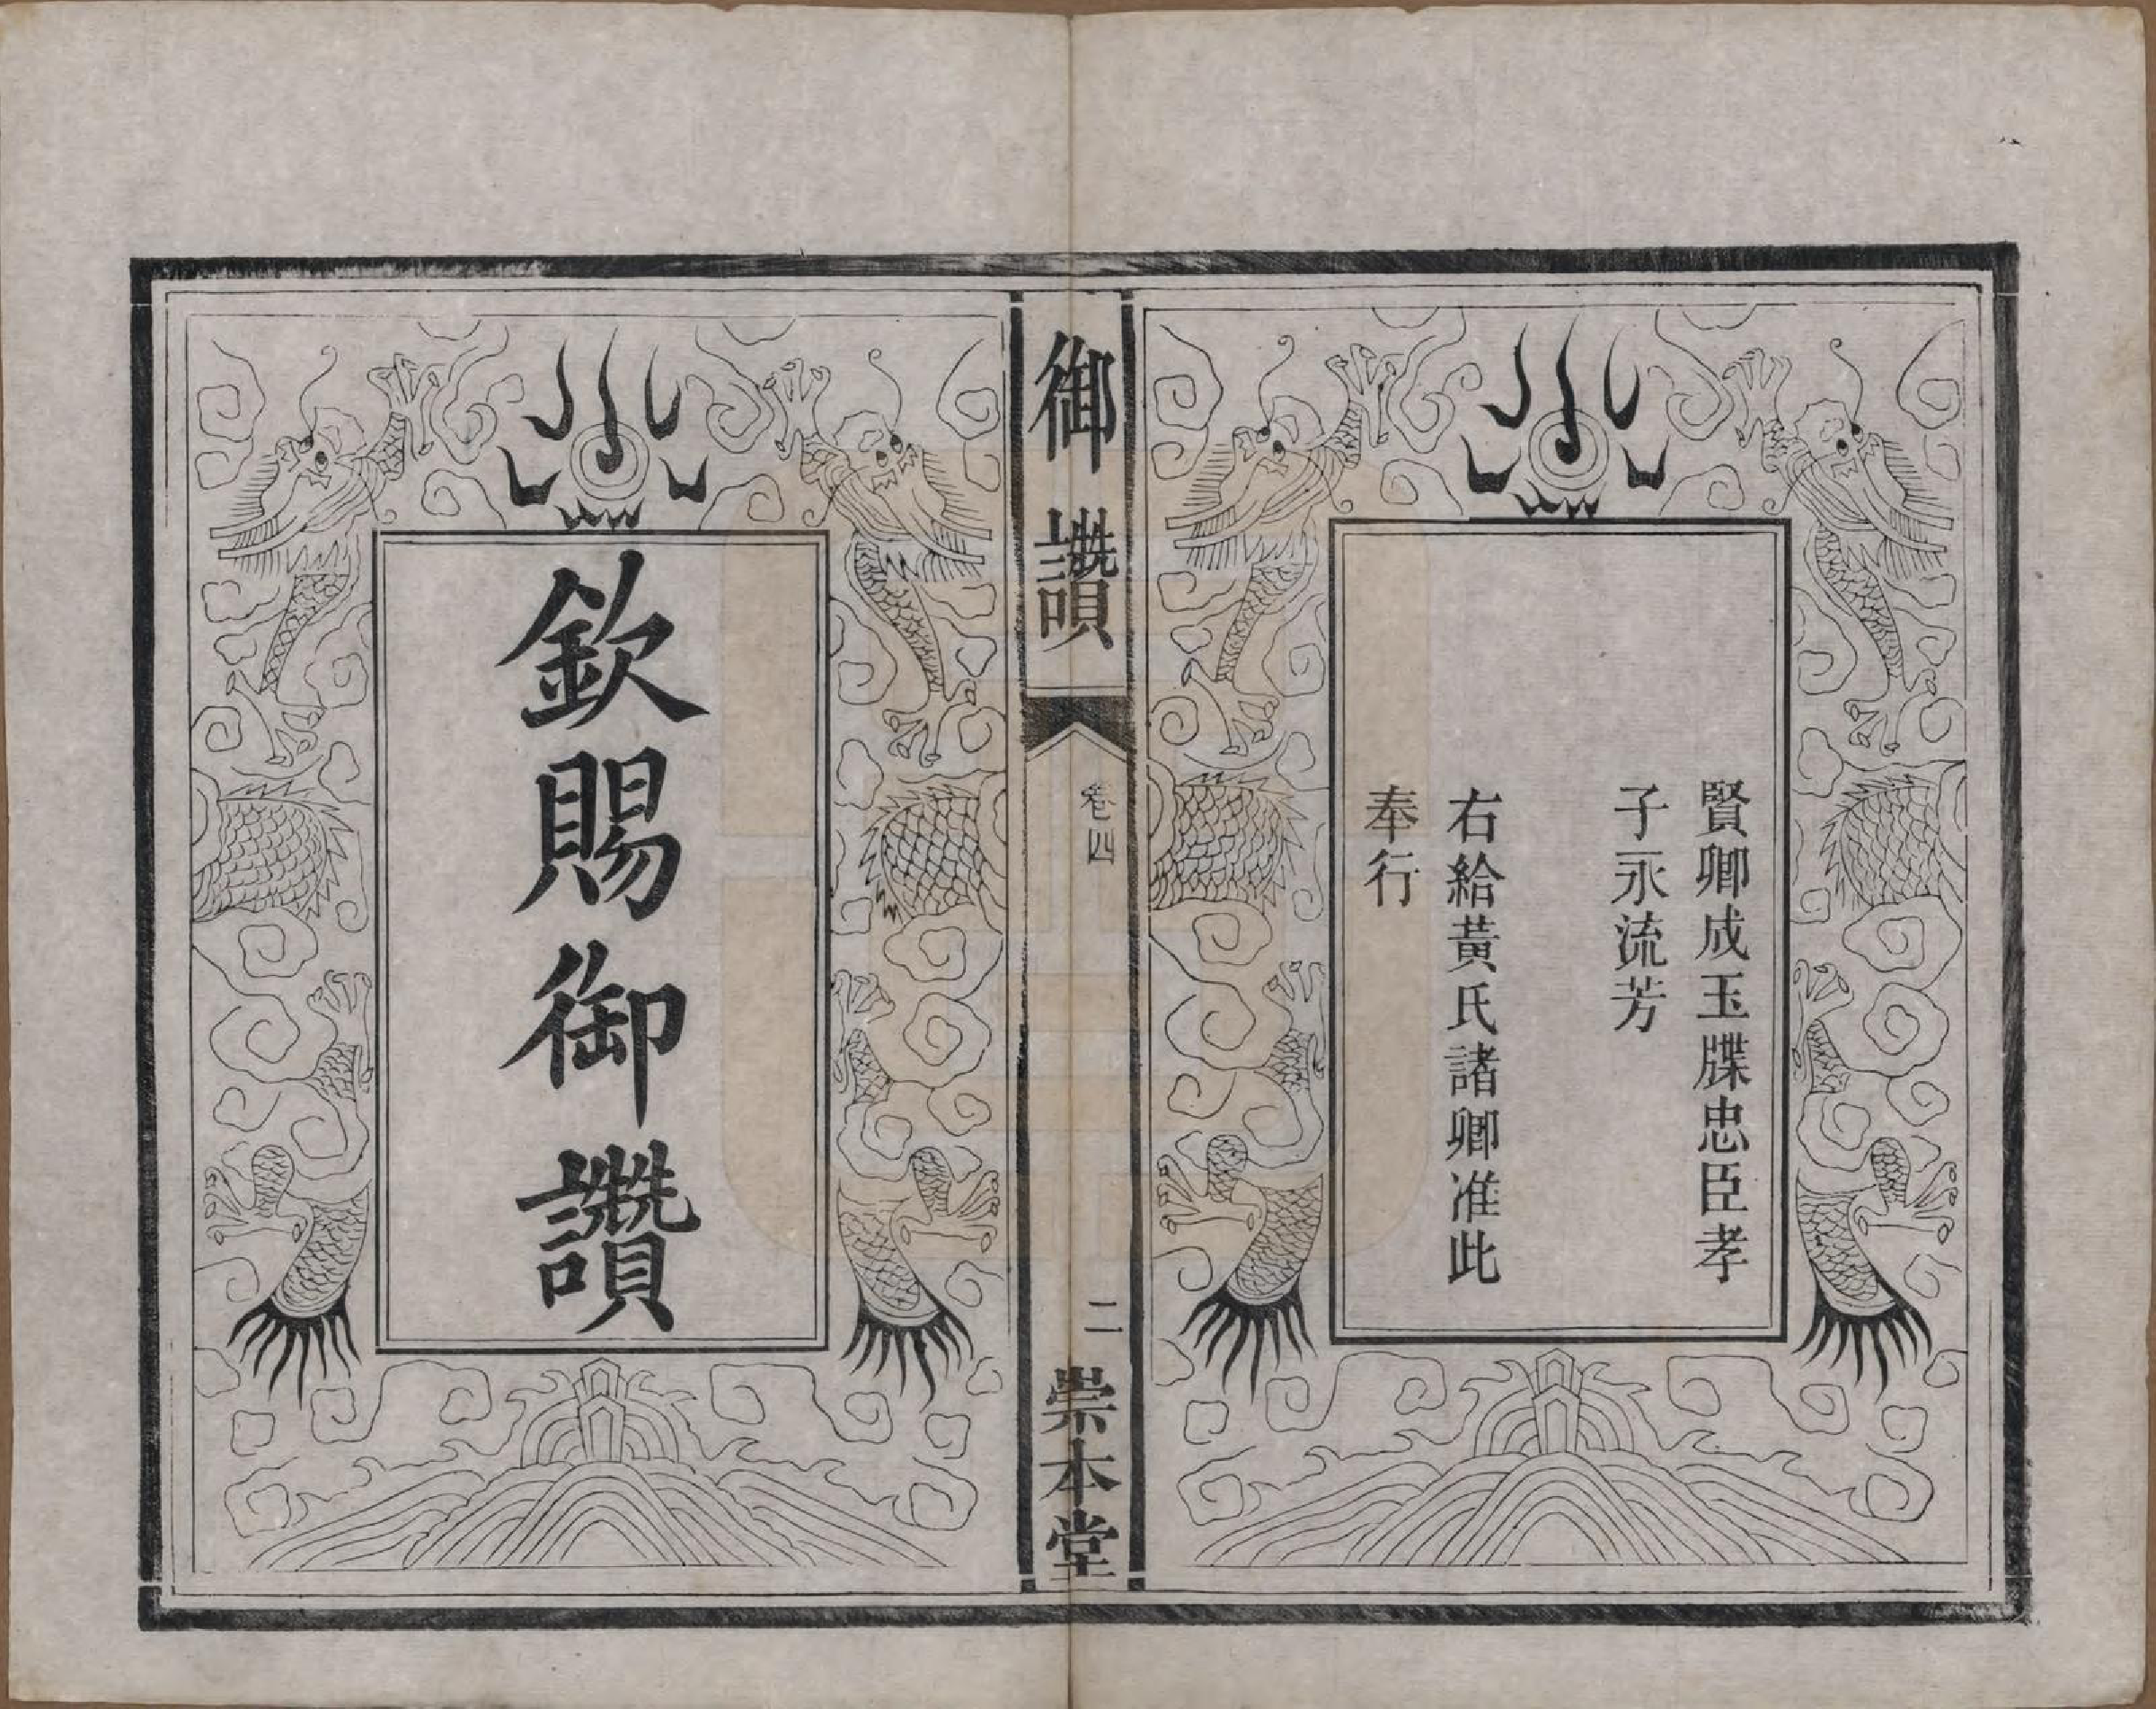 賢卿成玉牒忠臣孝
子永流芳
右給黃氏諸卿准此
奉行
御讚
卷四
二
崇本堂
欽賜御讚